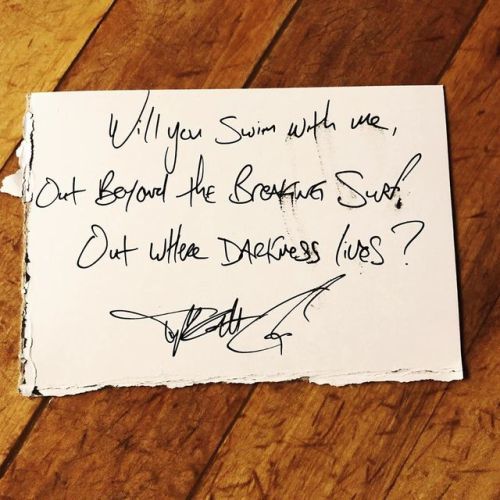 Will you Swim with me,
Out Beyond the Breaking Surf?
Out where DARKNESS lives?